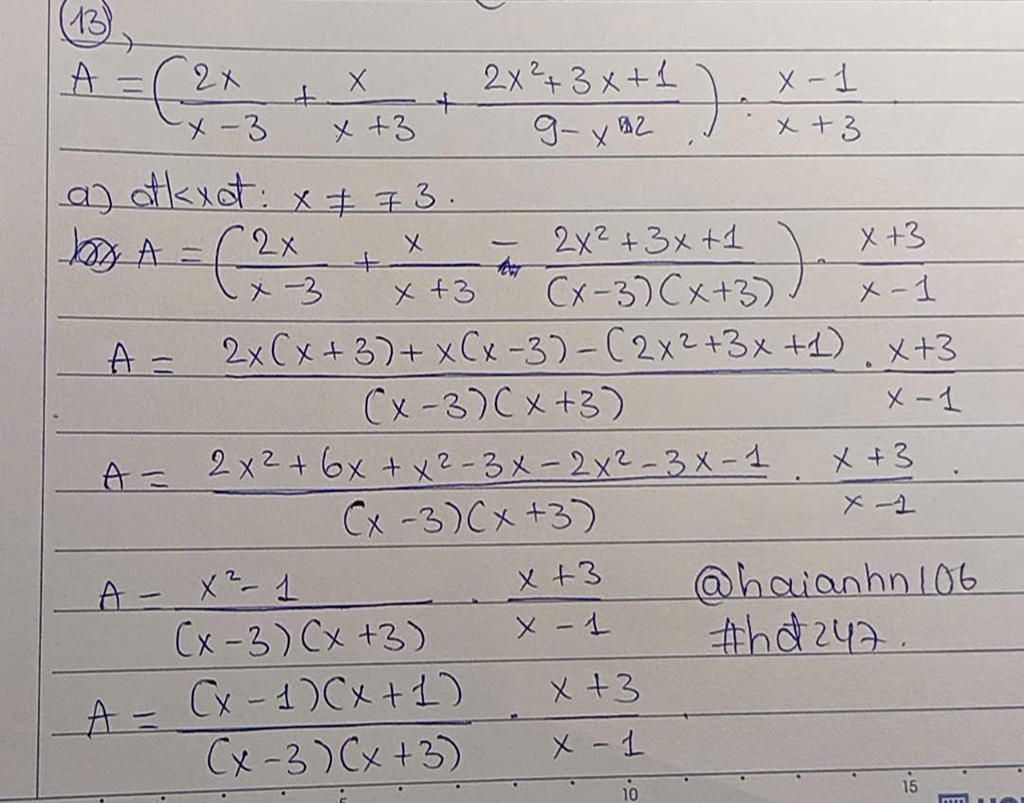 13,
A = (2x/(x-3) + x/(x+3) + (2x²+3x+1)/(9-x²)) : (x-1)/(x+3)
a) đkxđ: x ≠ ∓3.
A = (2x/(x-3) + x/(x+3) - (2x²+3x+1)/((x-3)(x+3))) . (x+3)/(x-1)
A = (2x(x+3)+x(x-3)-(2x²+3x+1))/((x-3)(x+3)) . (x+3)/(x-1)
A = (2x²+6x+x²-3x-2x²-3x-1)/((x-3)(x+3)) . (x+3)/(x-1) .
A = (x²-1)/((x-3)(x+3)) . (x+3)/(x-1)
@haianhn106
#hd247.
A = ((x-1)(x+1))/((x-3)(x+3)) . (x+3)/(x-1)
10
15